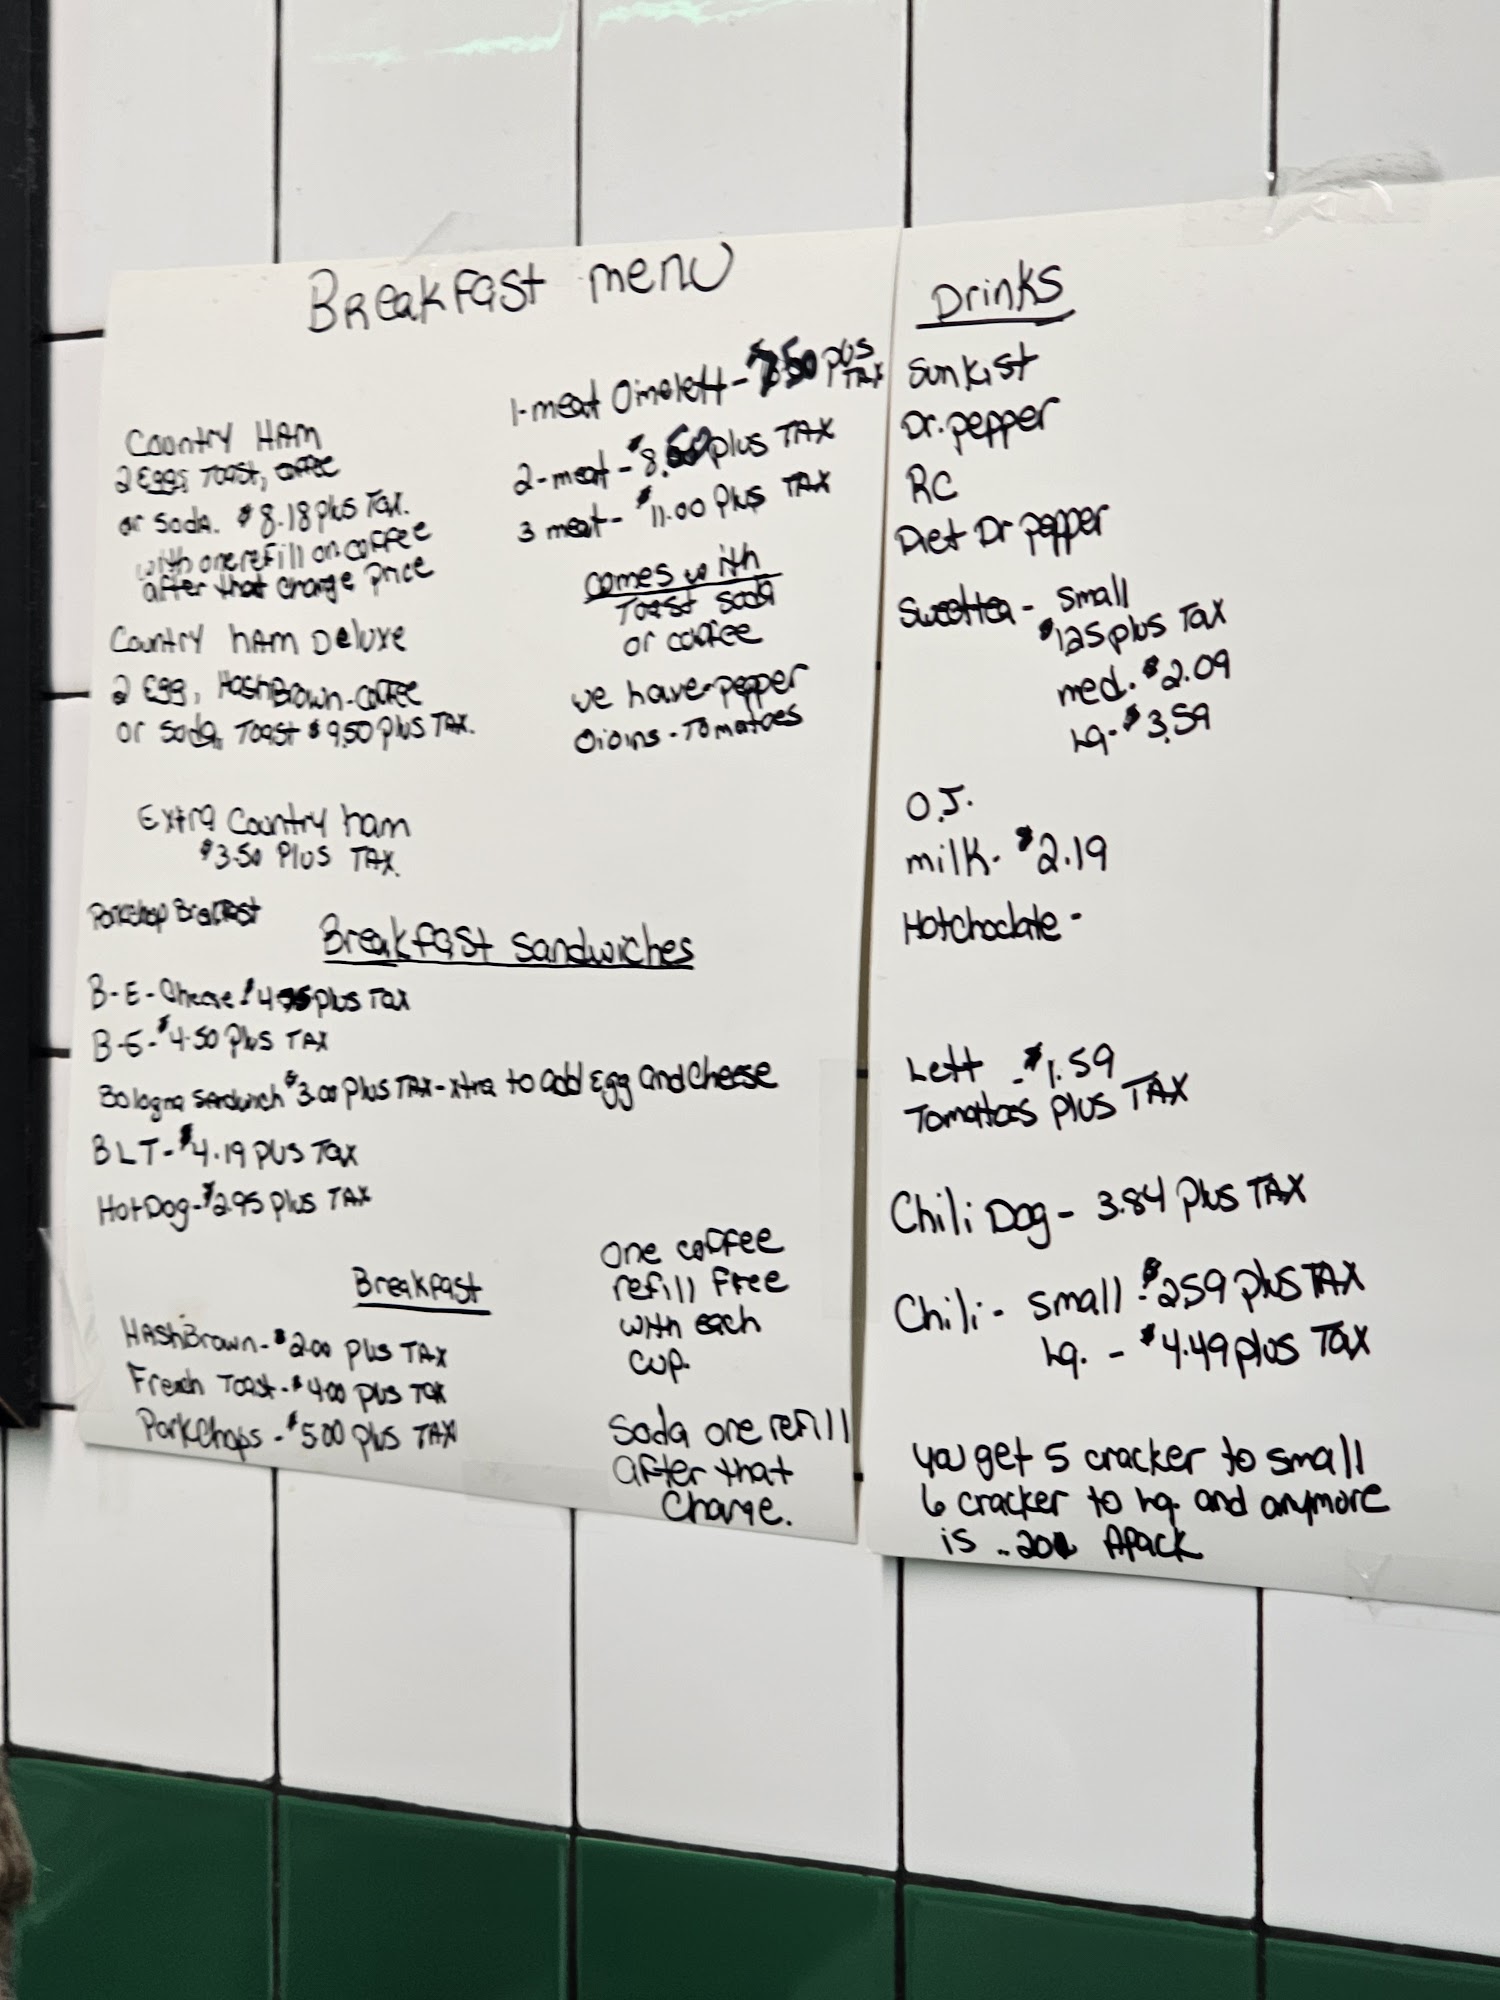 Breakfast menu
Country HAM
2 Eggs Toast, coffee
or soda. $8.18 plus Tax.
with one refill on coffee
after that charge price
Country hAM Deluxe
2 Egg, HashBrown-coffee
or soda, Toast $9.50 plus TAX.
Extra Country ham
$3.50 Plus TAX.
1-meat Omelett - 7.50 plus
TAX
2-meat - $8.50 plus TAX
3 meat - $11.00 Plus TAX
comes with
Toast soda
or coffee
we have-pepper
Oioins-Tomatoes
Porkchop Breakfast
Breakfast Sandwiches
B-E-Cheese $4 plus Tax
B-E-$4.50 Plus TAX
Bologna Sandwich $3.00 plus TAX-xtra to add Egg and cheese
BLT-$4.19 plus Tax
HotDog-$2.95 plus TAX
Breakfast
HAshBrown-$2.00 plus TAX
French Toast-$4.00 plus Tax
PorkChops-$5.00 plus TAX
One coffee
refill Free
with each
cup.
Soda one refill
after that
Charge.
Drinks
Sunkist
Dr. pepper
RC
Diet Dr pepper
Sweettea - small
$1.25 plus Tax
med. $2.09
Lg-$3.59
O.J.
milk- $2.19
Hotchoclate -
Lett - $1.59
Tomatoes plus TAX
Chili Dog - 3.84 plus TAX
Chili - small - $2.59 plus TAX
Lg. - $4.49 plus Tax
you get 5 cracker to small
6 cracker to Lg. and anymore
is ..20 Apack